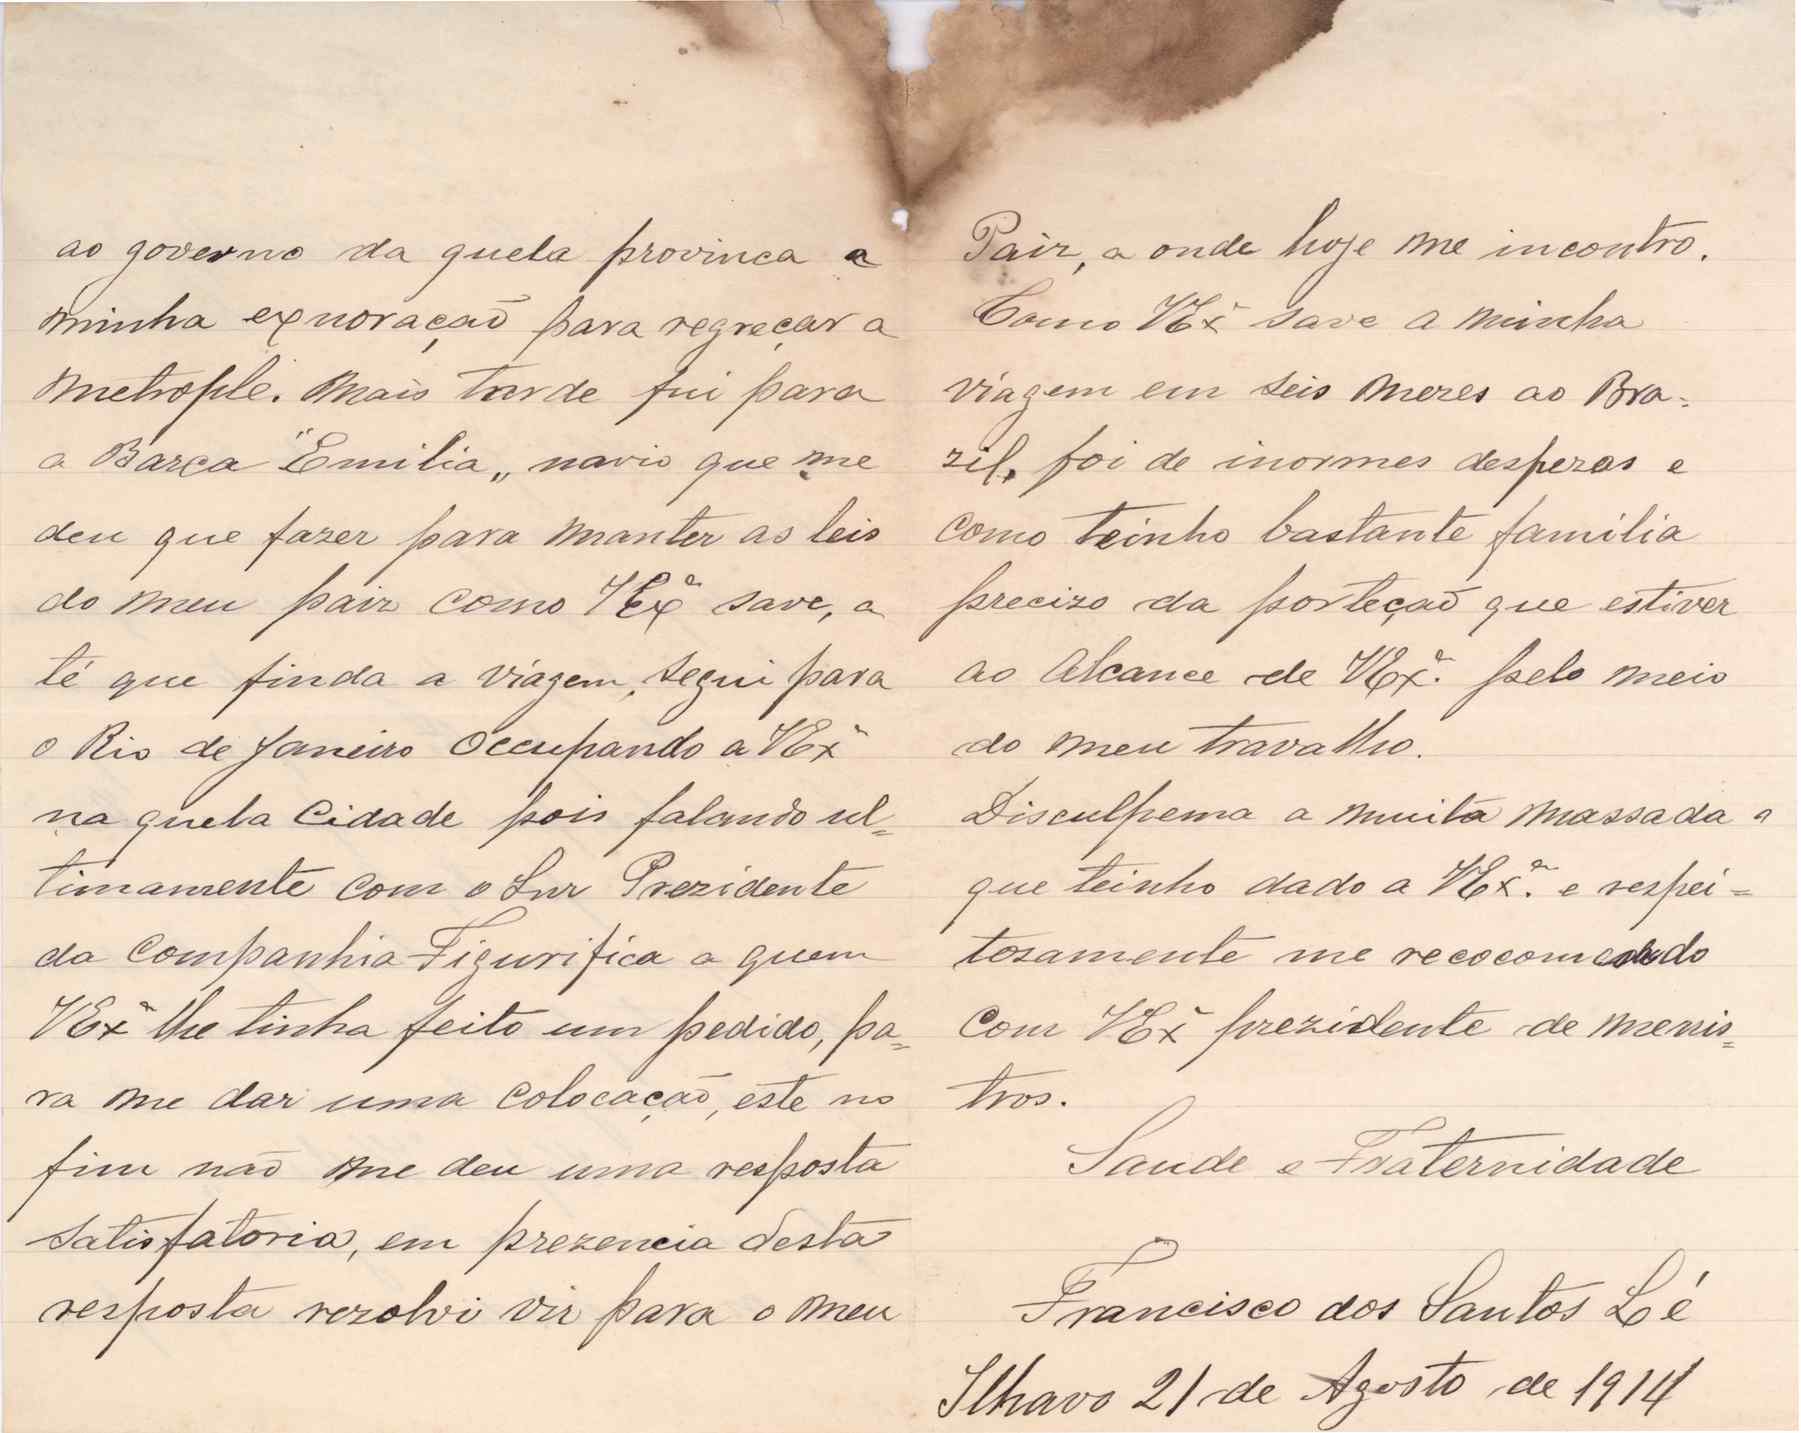 ao governo da quela provinca a
minha exnoração para regreçar a
metrople. Mais tarde fui para
a Barca "Emilia„ navio que me
deu que fazer para manter as leis
do meu paiz como VExª save, a
té que finda a viagem, segui para
o Rio de Janeiro occupando a VExª
na quela Cidade pois falando ul=
timamente com o Snr Prezidente
da Companhia Figurifica a quem
VExª lhe tinha feito um pedido, pa=
ra me dar uma colocação, este no
fim não me deu uma resposta
satisfatoria, em prezencia desta
resposta rezolvi vir para o meu
Paiz, a onde hoje me incontro.
Como VExª save a minha
viagem em seis mezes ao Bra=
zil, foi de inormes desperas e
como teinho bastante familia
precizo da porteção que estiver
ao Alcance de VExª. pelo meio
do meu travalho.
Disculpema a muita massada a
que teinho dado a VExª. e respei=
tosamente me recocomendo
com VExª prezidente de menis=
tros.
Saude e Fraternidade
Francisco dos Santos Lé
Ilhavo 21 de Agosto de 1914